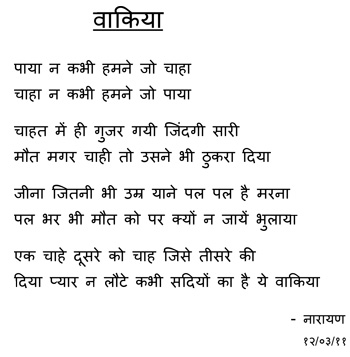 वाकिया
पाया न कभी हमने जो चाहा
चाहा न कभी हमने जो पाया
चाहत में ही गुजर गयी जिंदगी सारी
मौत मगर चाही तो उसने भी ठुकरा दिया
जीना जितनी भी उम्र याने पल पल है मरना
पल भर भी मौत को पर क्यों न जायें भुलाया
एक चाहे दूसरे को चाह जिसे तीसरे की
दिया प्यार न लौटे कभी सदियों का है ये वाकिया
- नारायण
१२/०३/११